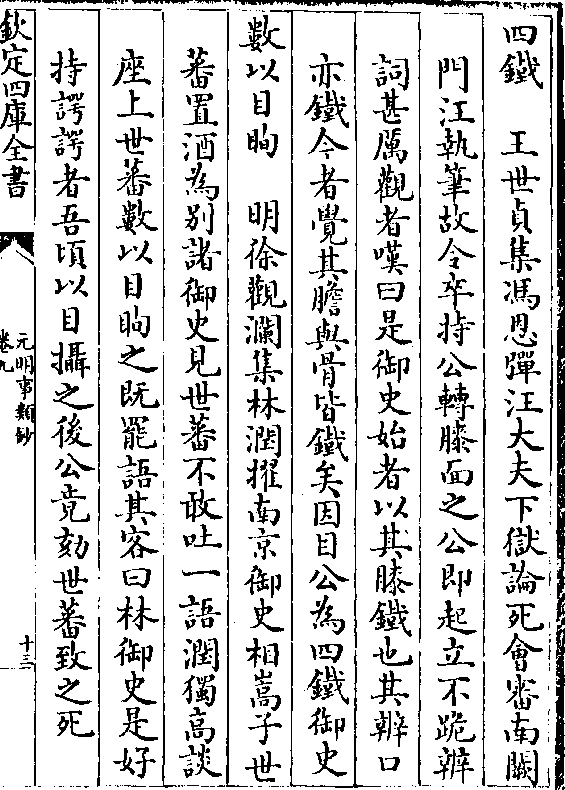 四鐵　王世貞集馮恩彈汪大夫下獄論死會審南闕
門汪執筆故令卒持公轉膝面之公即起立不跪辯
詞甚厲觀者嘆曰是御史始者以其膝鐵也其辯口
亦鐵今者覺其膽與骨皆鐵矣因目公為四鐵御史
數以目眴　明徐觀瀾集林潤擢南京御史相嵩子世
蕃置酒為別諸御史見世蕃不敢吐一語潤獨高談
座上世蕃數以目眴之既罷語其客曰林御史是好
持諤諤者吾頃以目攝之後公竟劾世蕃致之死
欽定四庫全書
元明事類鈔
卷九
十三